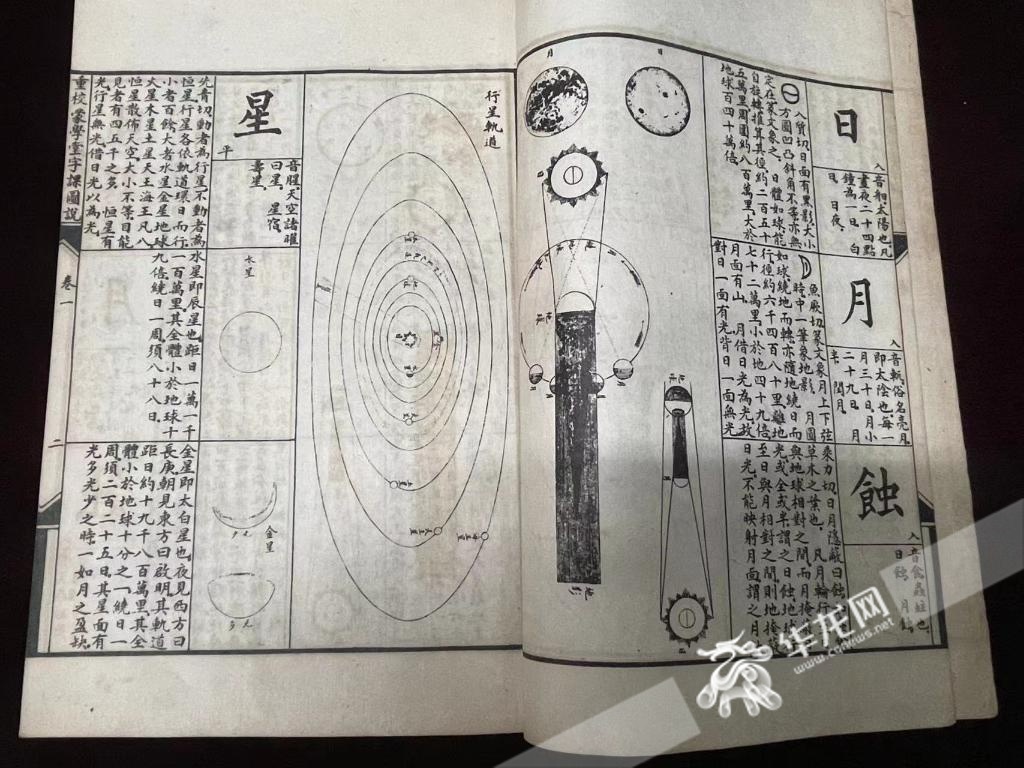 日
入
音馹太陽也凡
晝夜二十四點
鐘為一日。白
日。日夜。
入質切日面有黑影大小
定在篆文象之。日體如球能
自旋轉推算其徑約二百五十
五萬里周圍約八百萬里大於
地球百四十萬倍
月
入
月三十日。月小
二十九日。月
魚厥切篆文象月上下弦
時中一筆象地影。月圓
如球繞地而轉亦隨地繞日而
行徑約六千四百八十里離地
七十二萬里小於地四十九倍
月面有山。月借日光為光故
對日一面有光背日一面無光
蝕
入
日蝕。月蝕。
乘力切日月隱蔽曰蝕
草木之葉也。凡月輪行
與地球相對之間而月掩
光或全或半謂之日蝕地球
至日與月相對之間則地掩
日光不能映射月面謂之月
月
日
地球
地影
日
行星軌道
星
平
音腥天空諸曜
曰星。星宿。
壽星。
先青切動者為行星不動者為
恒星行星各依軌道環日而行
小者百餘大者水星金星地球
火星木星土星天王海王凡八
恒星散佈天空大小不等目能
見者有四五千之多。恒星有
光行星無光借日光以為光
水星
水星即辰星也距日一萬一千
一百萬里其全體小於地球十
九倍繞日一周須八十八日。
金星
少光
多光
金星即太白星也夜見西方曰
長庚朝見東方曰啟明其軌道
距日約十九千八百萬里其全
體小於地球十分之一繞日一
周須二百二十五日其星面有
光多光少之時一如月之盈缺
重校蒙學堂字課圖說
卷一
二
华龙网
www.cqnews.net